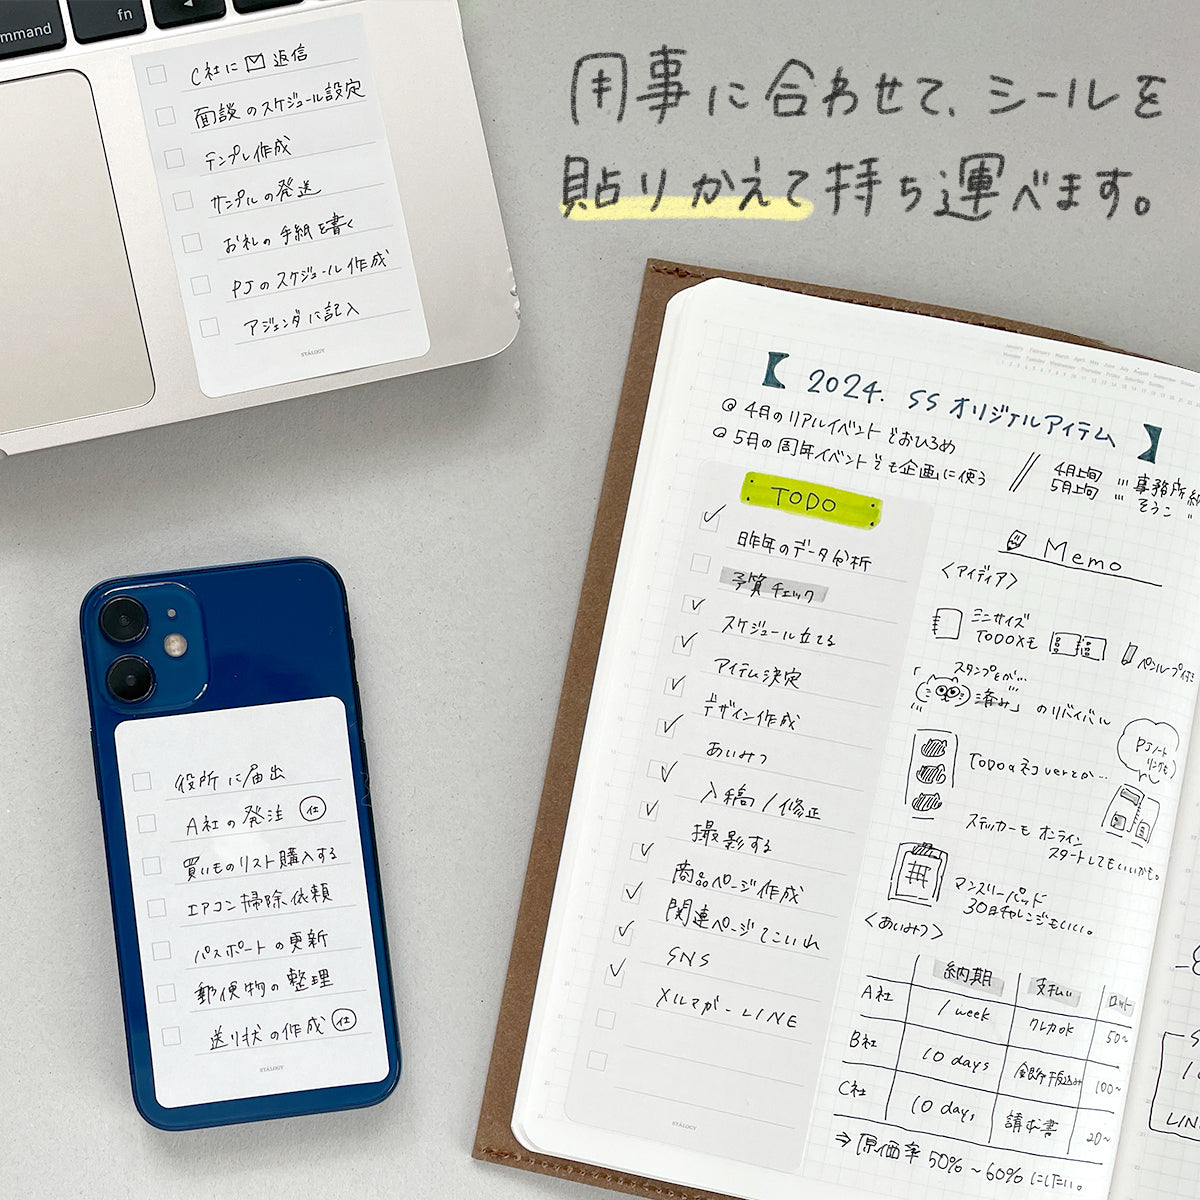 用事に合わせて、シールを
貼りかえて持ち運べます。
command
fn
C社に 返信
面談のスケジュール設定
テンプレ作成
サンプルの発送
お礼の手紙を書く
PJのスケジュール作成
アジェンダに記入
STÁLOGY
役所に届出
A社の発注 仕
買いものリスト購入する
エアコン掃除依頼
パスポートの更新
郵便物の整理
送り状の作成 仕
STÁLOGY
【2024. SS オリジナルアイテム】
4月のリアルイベントでおひろめ
5月の周年イベントでも企画に使う
4月上旬 ''' 事務所納
5月上旬 ''' そうこ "
TODO
昨年のデータ分析
予算チェック
スケジュール立てる
アイテム決定
デザイン作成
あいみつ
入稿/修正
撮影する
商品ページ作成
関連ページてこいれ
SNS
メルマガ-LINE
STÁLOGY
Memo
<アイディア>
ミニサイズ
TODOメモ
ペンループ付き
スタンプとか…
「済み」のリバイバル
TODOのネコverとか…
PJノート
リングも
ステッカーも オンライン
スタートしてもいいかも。
マンスリーパッド
30日チャレンジもいい。
<あいみつ>
納期 支払い ロット
A社 1 week クレカok 50~
B社 10 days 銀行振込み 100~
C社 10 days 請求書 20~
⇒ 原価率 50%~60%にしたい。
LINE